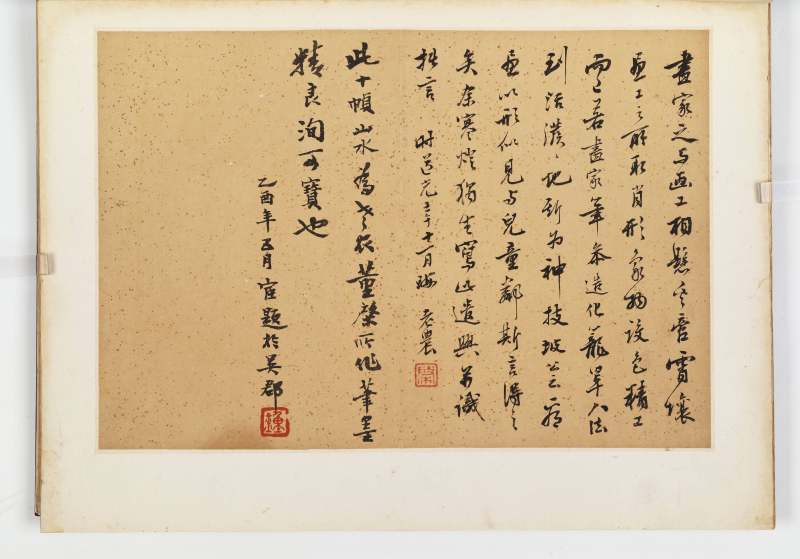 畫家之与画工相懸奚啻霄壤
画工之所取肖形象物設色精工
而已若畫家筆參造化籠罩八法
到活潑〻地斯为神技坡公云論
画以形似見与兒童鄰斯言得之
矣余寒燈獨坐寫此遣興并識
拙言 时道光二十年十一月 老農
此十幀山水為老農董棨所作筆墨
精良洵可寶也
乙酉年五月宦題於吳郡